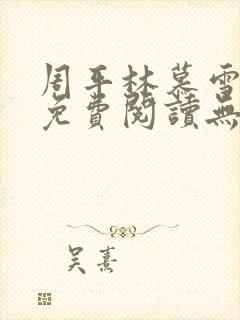 周平林慕雪
免費閱讀無
吴熹